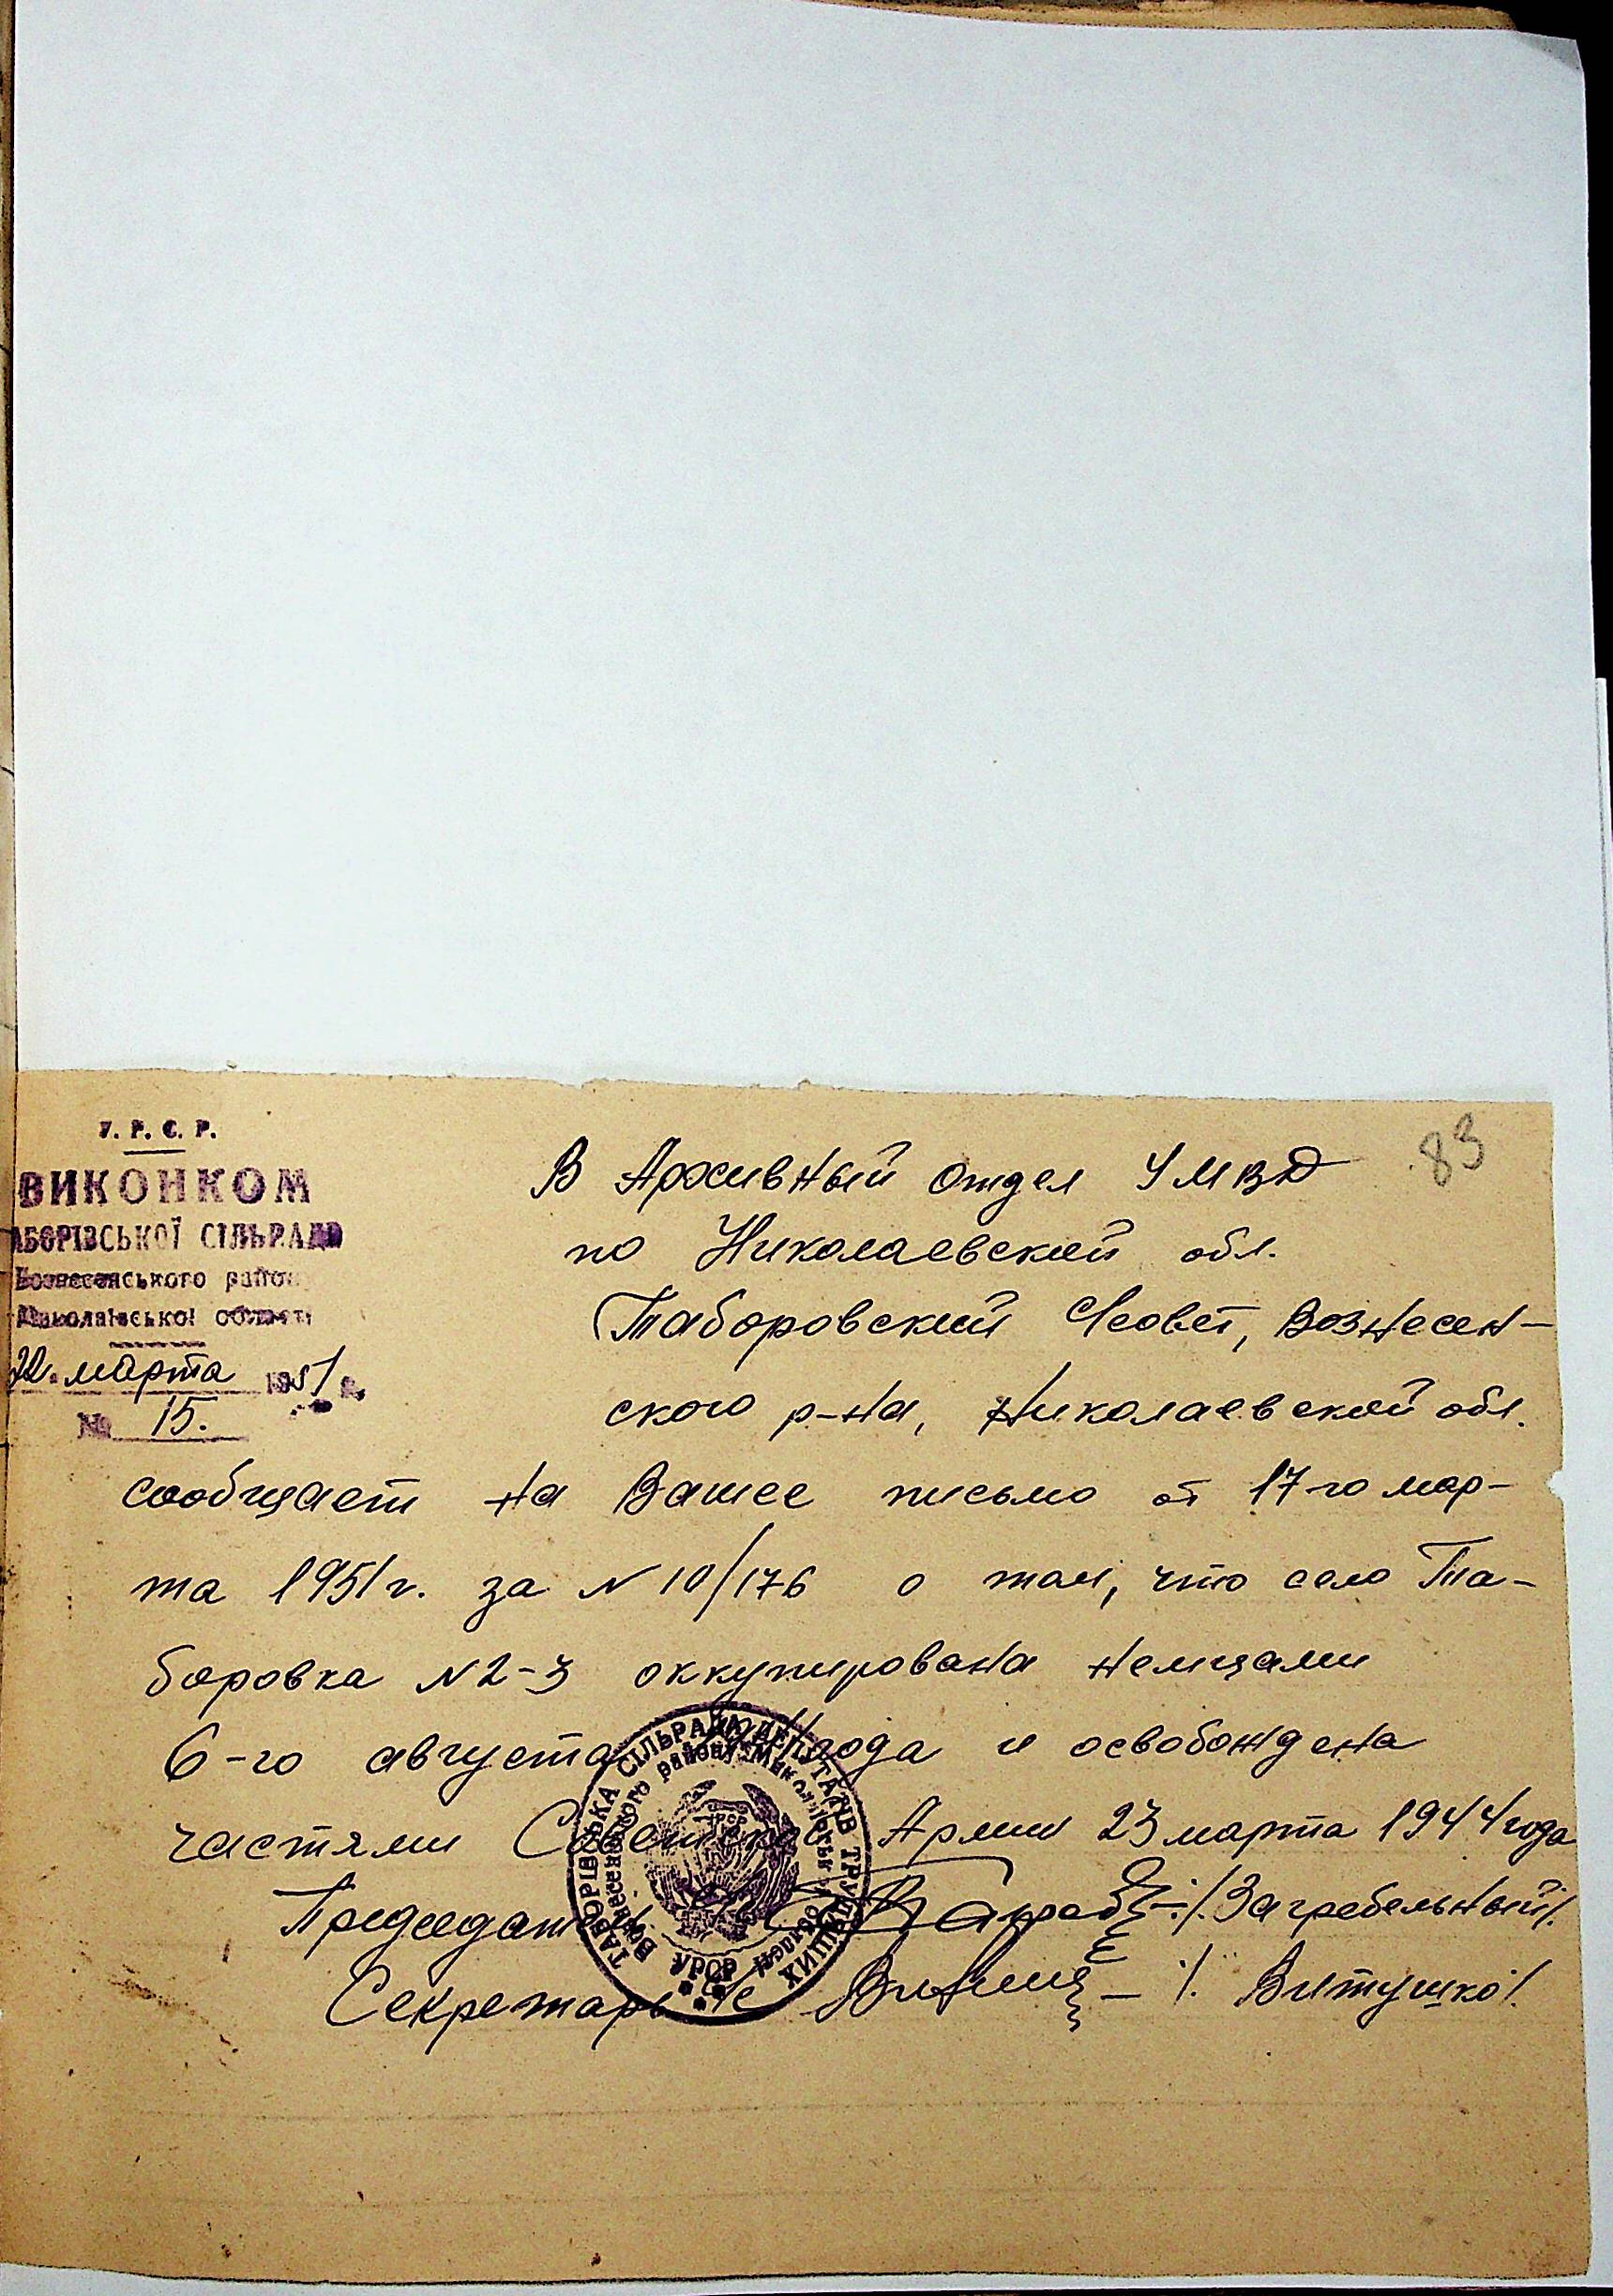 83
У. Р. С. Р.
ВИКОНКОМ
АБОРІВСЬКОЇ СІЛЬРАДИ
Вознесенського район
Миколаївської області
22. марта 1951 г.
№ 15.
В Архивный отдел УМВД
по Николаевской обл.
Таборовский с/совет, Вознесен-
ского р-на, Николаевской обл.
сообщает на Ваше письмо от 17-го мар-
та 1951 г. за N 10/176 о том, что село Та-
боровка N 2-3 оккупирована немцами
6-го августа года и освобождена
частями Советской Армии 23 марта 1944 года
Председатель /Загребельный/.
Секретарь с/с /. Витушко/.
ТАБОРІВСЬКА СІЛЬРАДА ДЕПУТАТІВ ТРУДЯЩИХ
Вознесенського району Миколаївської області
УРСР